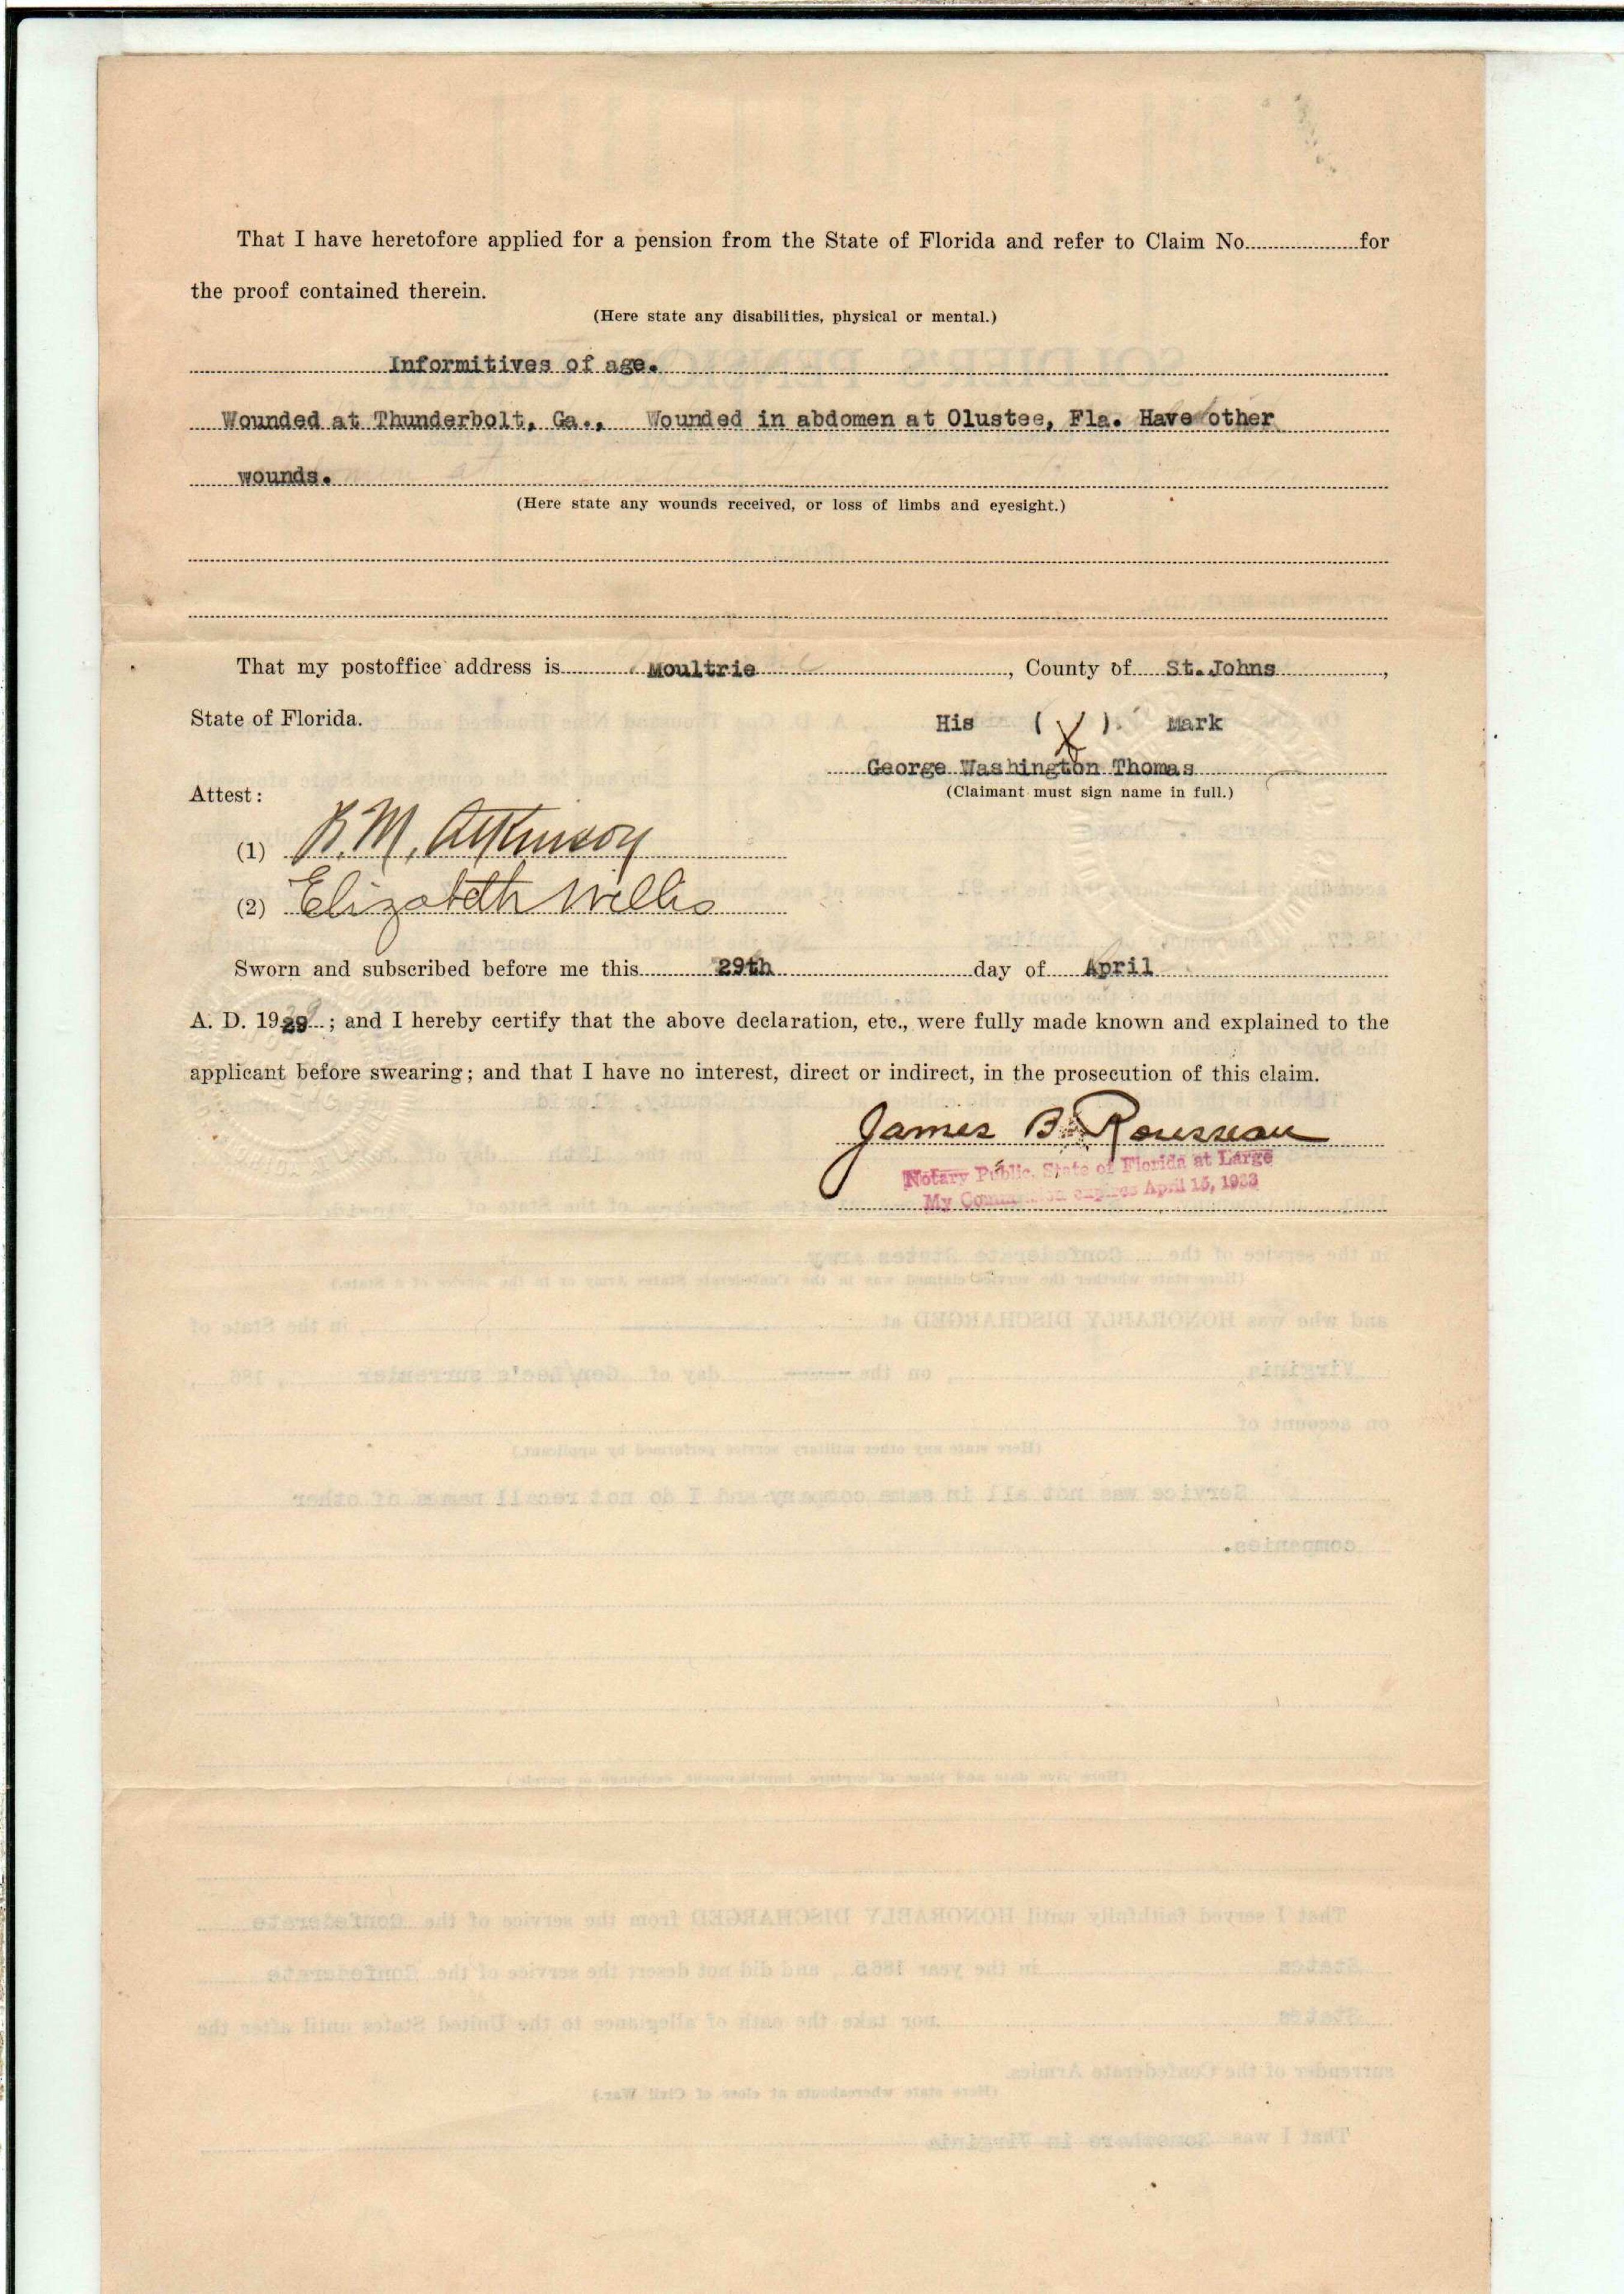 That I have heretofore applied for a pension from the State of Florida and refer to Claim No....................for
the proof contained therein.
(Here state any disabilities, physical or mental.)
Informitives of age.
Wounded at Thunderbolt, Ga., Wounded in abdomen at Olustee, Fla. Have other
wounds.
(Here state any wounds received, or loss of limbs and eyesight.)
That my postoffice address is Moultrie, County of St. Johns,
State of Florida.
His (X) Mark
George Washington Thomas
(Claimant must sign name in full.)
Attest:
(1) B. M. Atkinson
(2) Elizabeth Willis
Sworn and subscribed before me this 29th day of April
A. D. 1929; and I hereby certify that the above declaration, etc., were fully made known and explained to the
applicant before swearing; and that I have no interest, direct or indirect, in the prosecution of this claim.
James B. Rousseau
Notary Public, State of Florida at Large
My Commission expires April 15, 1933